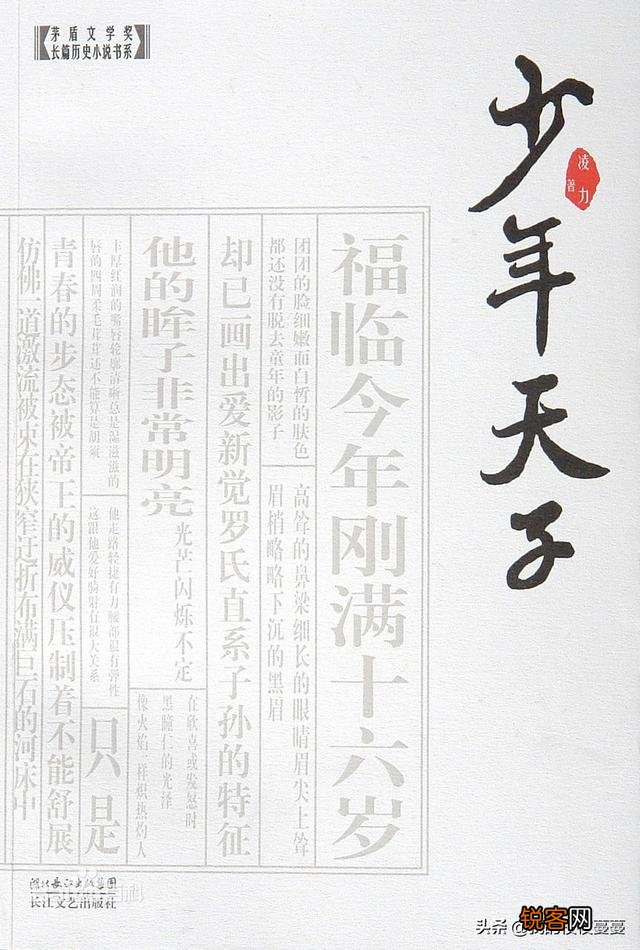 茅盾文学奖
长篇历史小说书系
少年天子
凌力
著
福临今年刚满十六岁
团团的脸细嫩而白皙的肤色
都还没有脱去童年的影子
高耸的鼻梁细长的眼睛眉尖上耸
眉梢略略下沉的黑眉
却已画出爱新觉罗氏直系子孙的特征
他的眸子非常明亮
光芒闪烁不定
在欣喜或发怒时
黑瞳仁的光泽
像火焰一样炽热灼人
丰厚红润的嘴唇轮廓清晰总是湿滋滋的
唇的四周柔毛茸茸还不能算是胡须
他走路轻捷有力腰部很有弹性
这跟他爱好骑射有很大关系
只是
青春的步态被帝王的威仪压制着不能舒展
仿佛一道激流被束在狭窄迂折布满巨石的河床中
湖北长江出版集团
长江文艺出版社
头条
锐客网